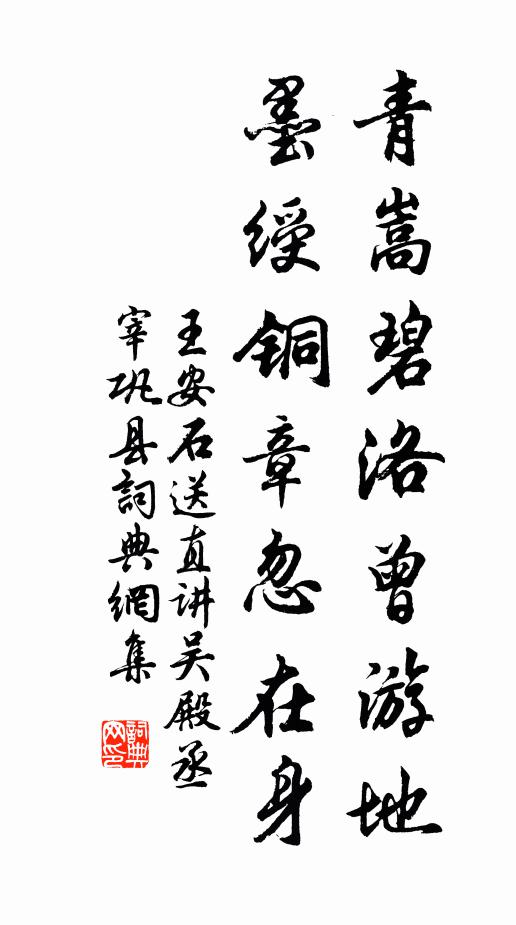 青嵩碧洛曾游地
墨綬铜章忽在身
王安石送直讲吴殿丞
宰巩县詞典網集
詞典
网印